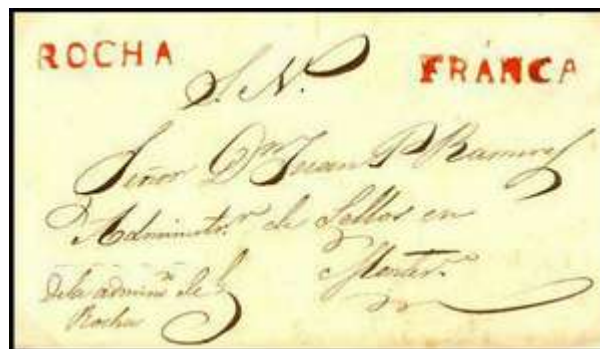 ROCHA
FRANCA
S. N.
Señor Dn Juan P Ramires
Administr.r de Sellos en
Montev.o
De la admin.on de
Rocha